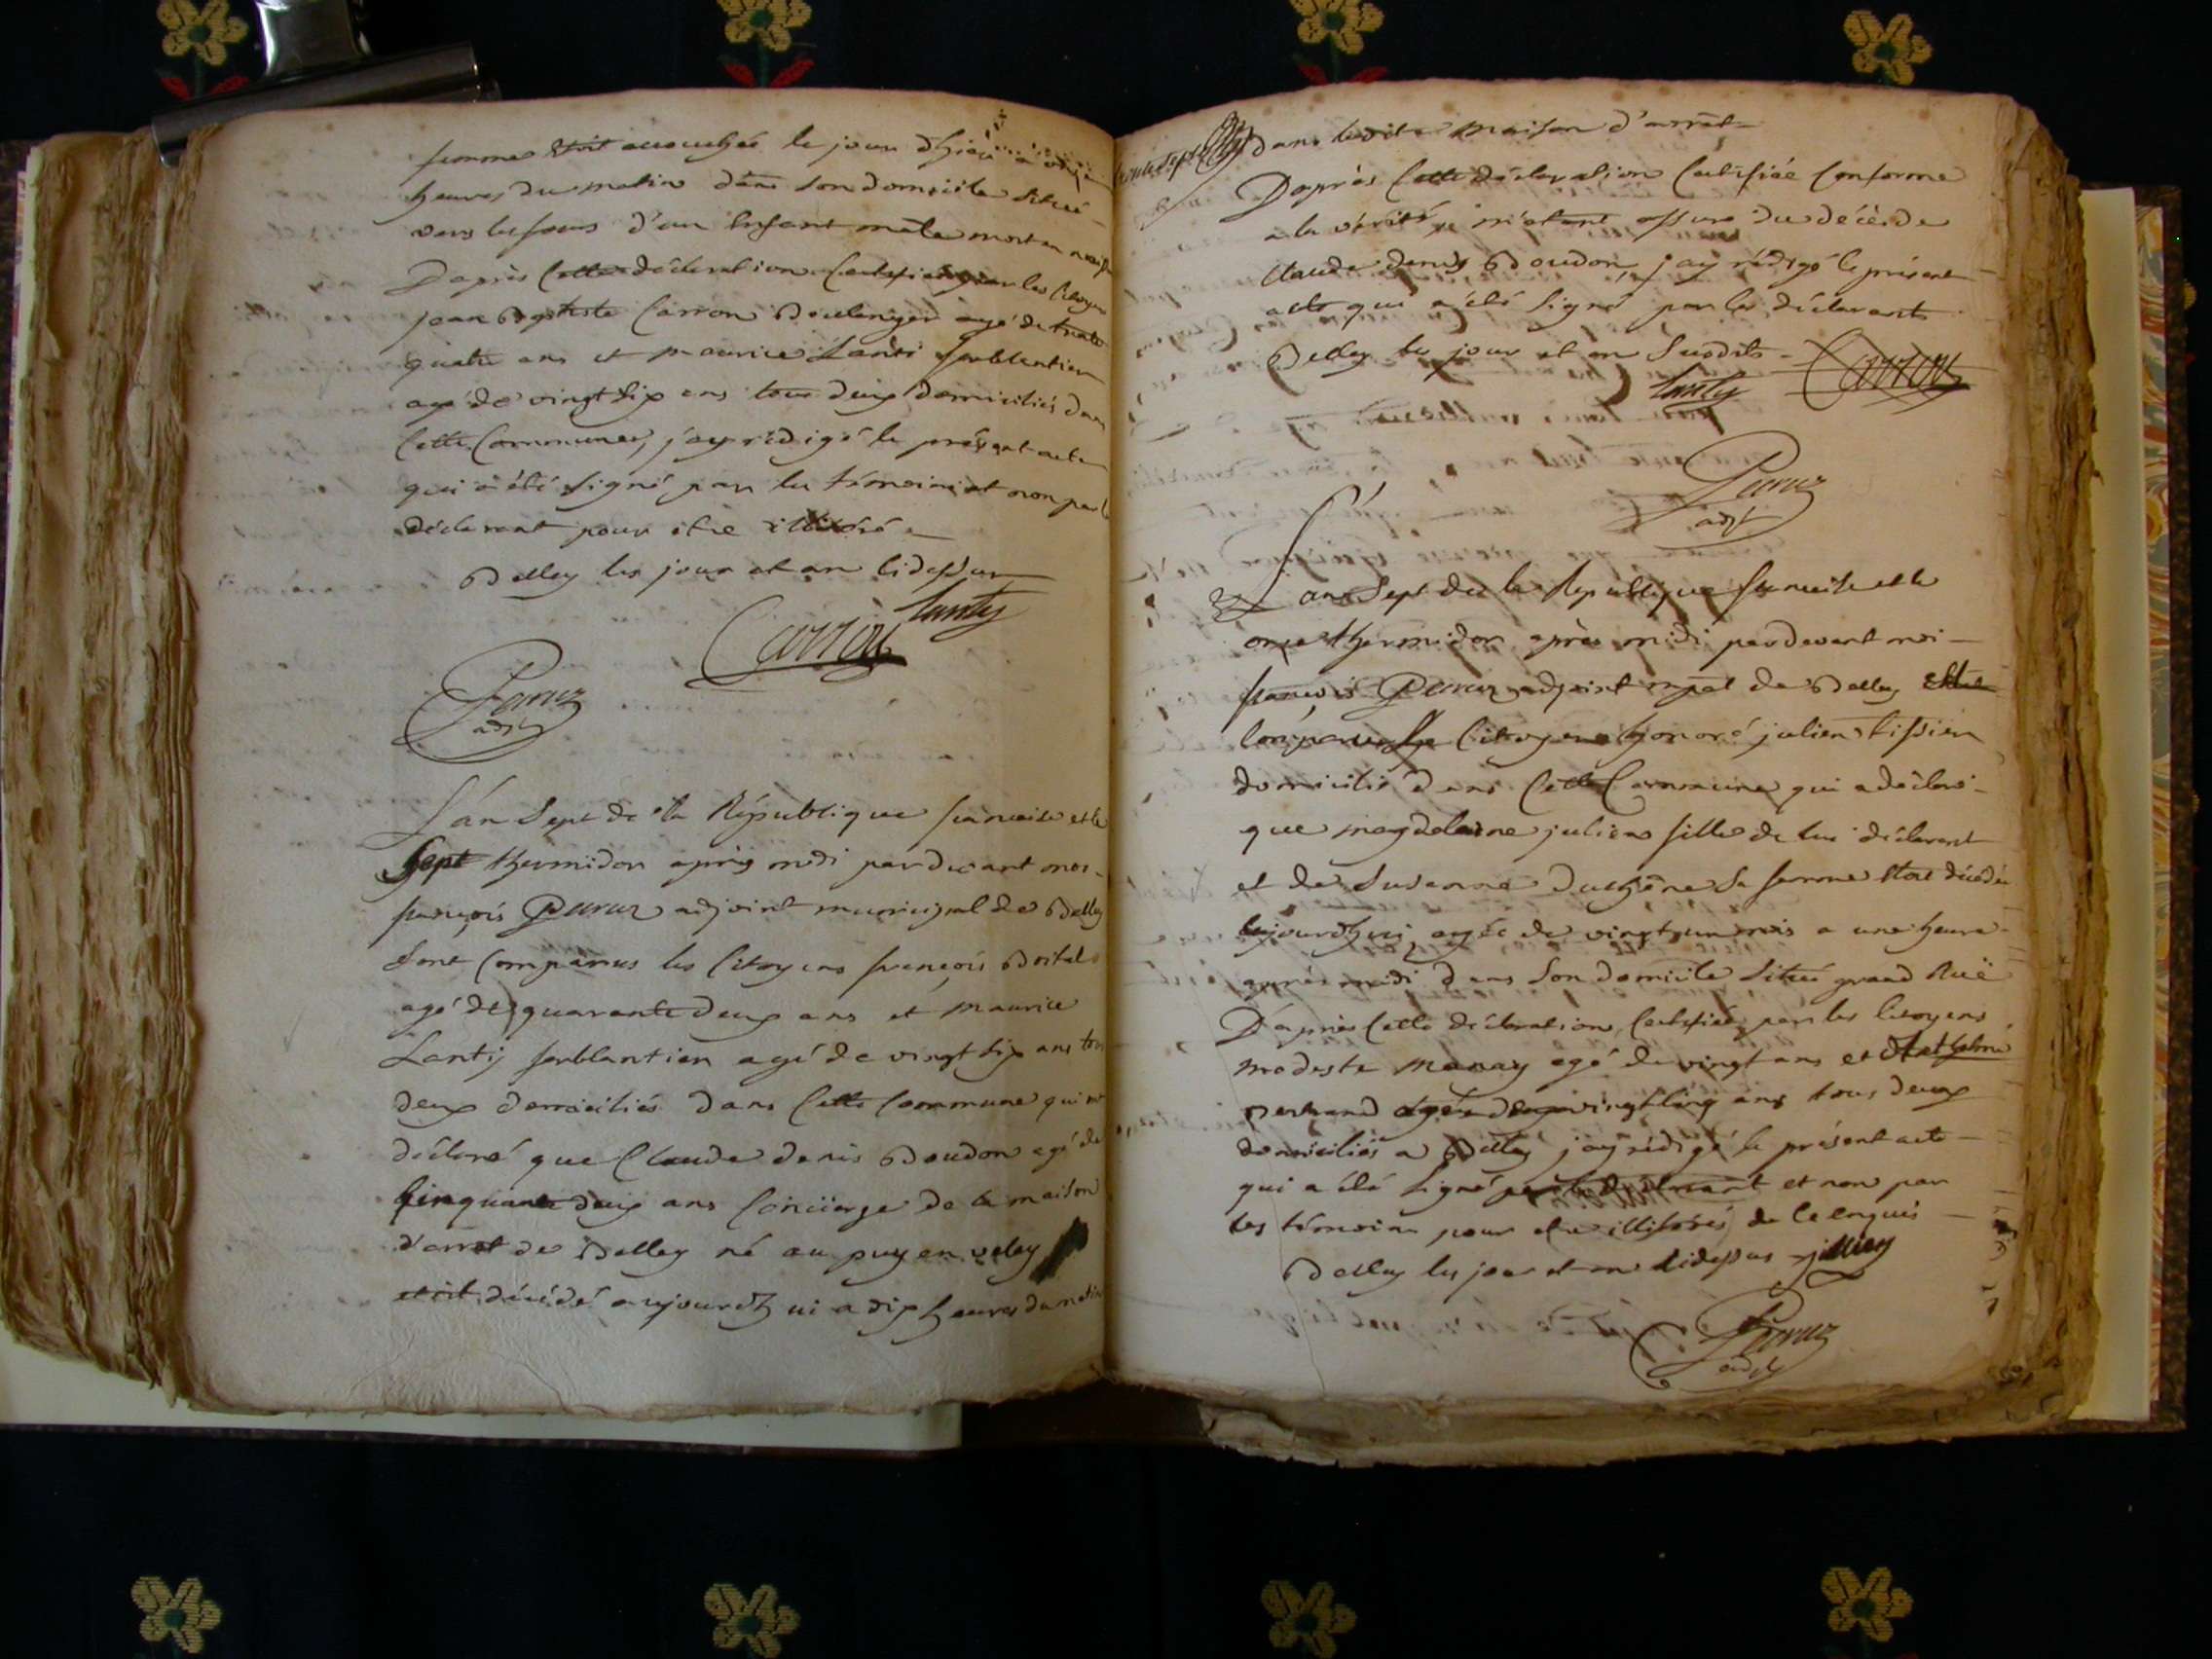 femme etoit accouchée le jour d'hier a onze
heures du matin dans son domicile situé
vers les fours d'un Enfant mâle mort en naiss
D'après cette déclaration Certifiée par les Citoyens
jean Baptiste Carron Boulanger agé de trente
quatre ans et maurice Lanti ferblantier
agé de vingt six ans tous deux domiciliés dans
Cette Commune, j'ay rédigé le présent acte
qui a été signé par les témoins et non par le
déclarant pour être illitéré
Belley les jour et an cidessus
Lanty
Carron
Parux
adjt
L'an Sept de la République francaise et le
Sept thermidor après midi pardevant moi
françois Parux adjoint municipal de Belley
Sont Comparus les Citoyens françois Boital
agé de quarante deux ans et maurice
Lantij ferblantier agé de vingt six ans tous
deux domiciliés dans Cette Commune qui ont
déclaré que Claude denis Boudon agé de
Cinquante deux ans Conciërge de la maison
d'arret de Belley né au puy en velay
etoit décédé aujourd'hui a dix heures du matin
trente sept
dans ledite maison d'arrêt
D'après Cette déclaration Certifiée Conforme
a la vérité, m'étant assuré du décès de
Claude denis Boudon, j'ay rédigé le présent
acte qui a été signé par les déclarants
Belley les jour et an Susdits
Lanty Carron
Parux
adjt
L'an Sept de la République francaise et le
onze thermidor après midi pardevant moi
francois Parux adjoint mpal de Belley Est
Comparu le Citoyen honoré julien tissier
domicilié dans Cette Commune, qui a déclaré
que magdelaine julien fille de lui déclarant
et de Susanne duchêne Sa femme etoit décédée
aujourd'hui, agée de vingt un mois a une heure
après midi dans Son domicile Situé grand Ruë
D'après Cette déclaration, Certifiée par les Citoyens
modeste Manay agé de vingt ans et Anthelme
Bertrand agé de vingt Cinq ans tous deux
domiciliés a Belley j'ay rédigé le présent acte
qui a été Signé par le déclarant et non par
les témoins pour etre illitérés de Ce enquis
Belley les jour et an Cidessus jullien
Parux
adjt